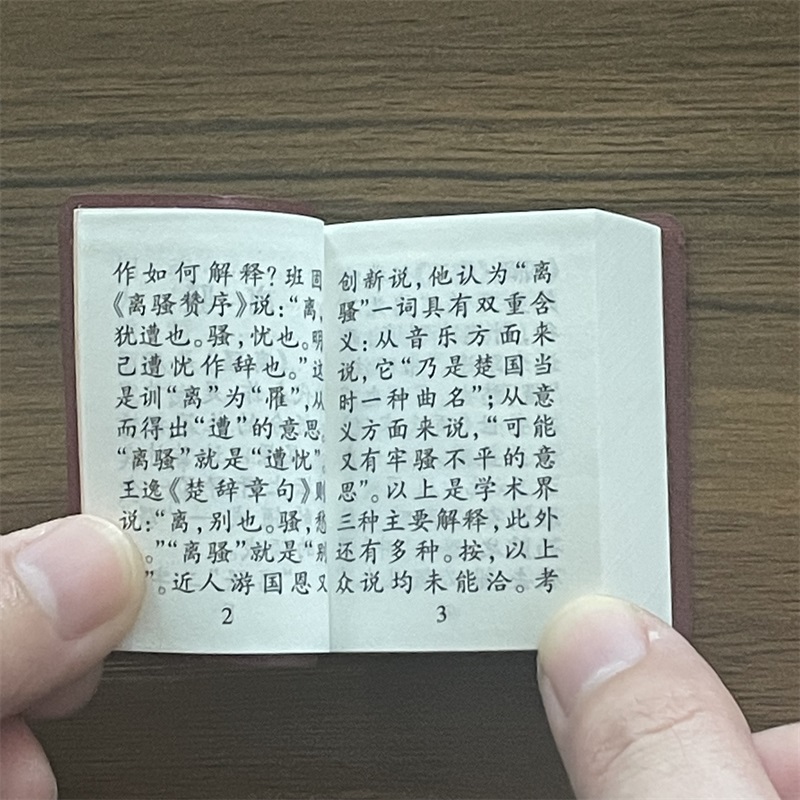 作如何解释?班固
《离骚赞序》说:“离,
犹遭也。骚,忧也。明
己遭忧作辞也。”这
是训“离”为“罹”,从
而得出“遭”的意思。
“离骚”就是“遭忧”。
王逸《楚辞章句》则
说:“离,别也。骚,愁
。”“离骚”就是“别
”。近人游国恩又
2
创新说,他认为“离
骚”一词具有双重含
义:从音乐方面来
说,它“乃是楚国当
时一种曲名”;从意
义方面来说,“可能
又有牢骚不平的意
思”。以上是学术界
三种主要解释,此外
还有多种。按,以上
众说均未能洽。考
3